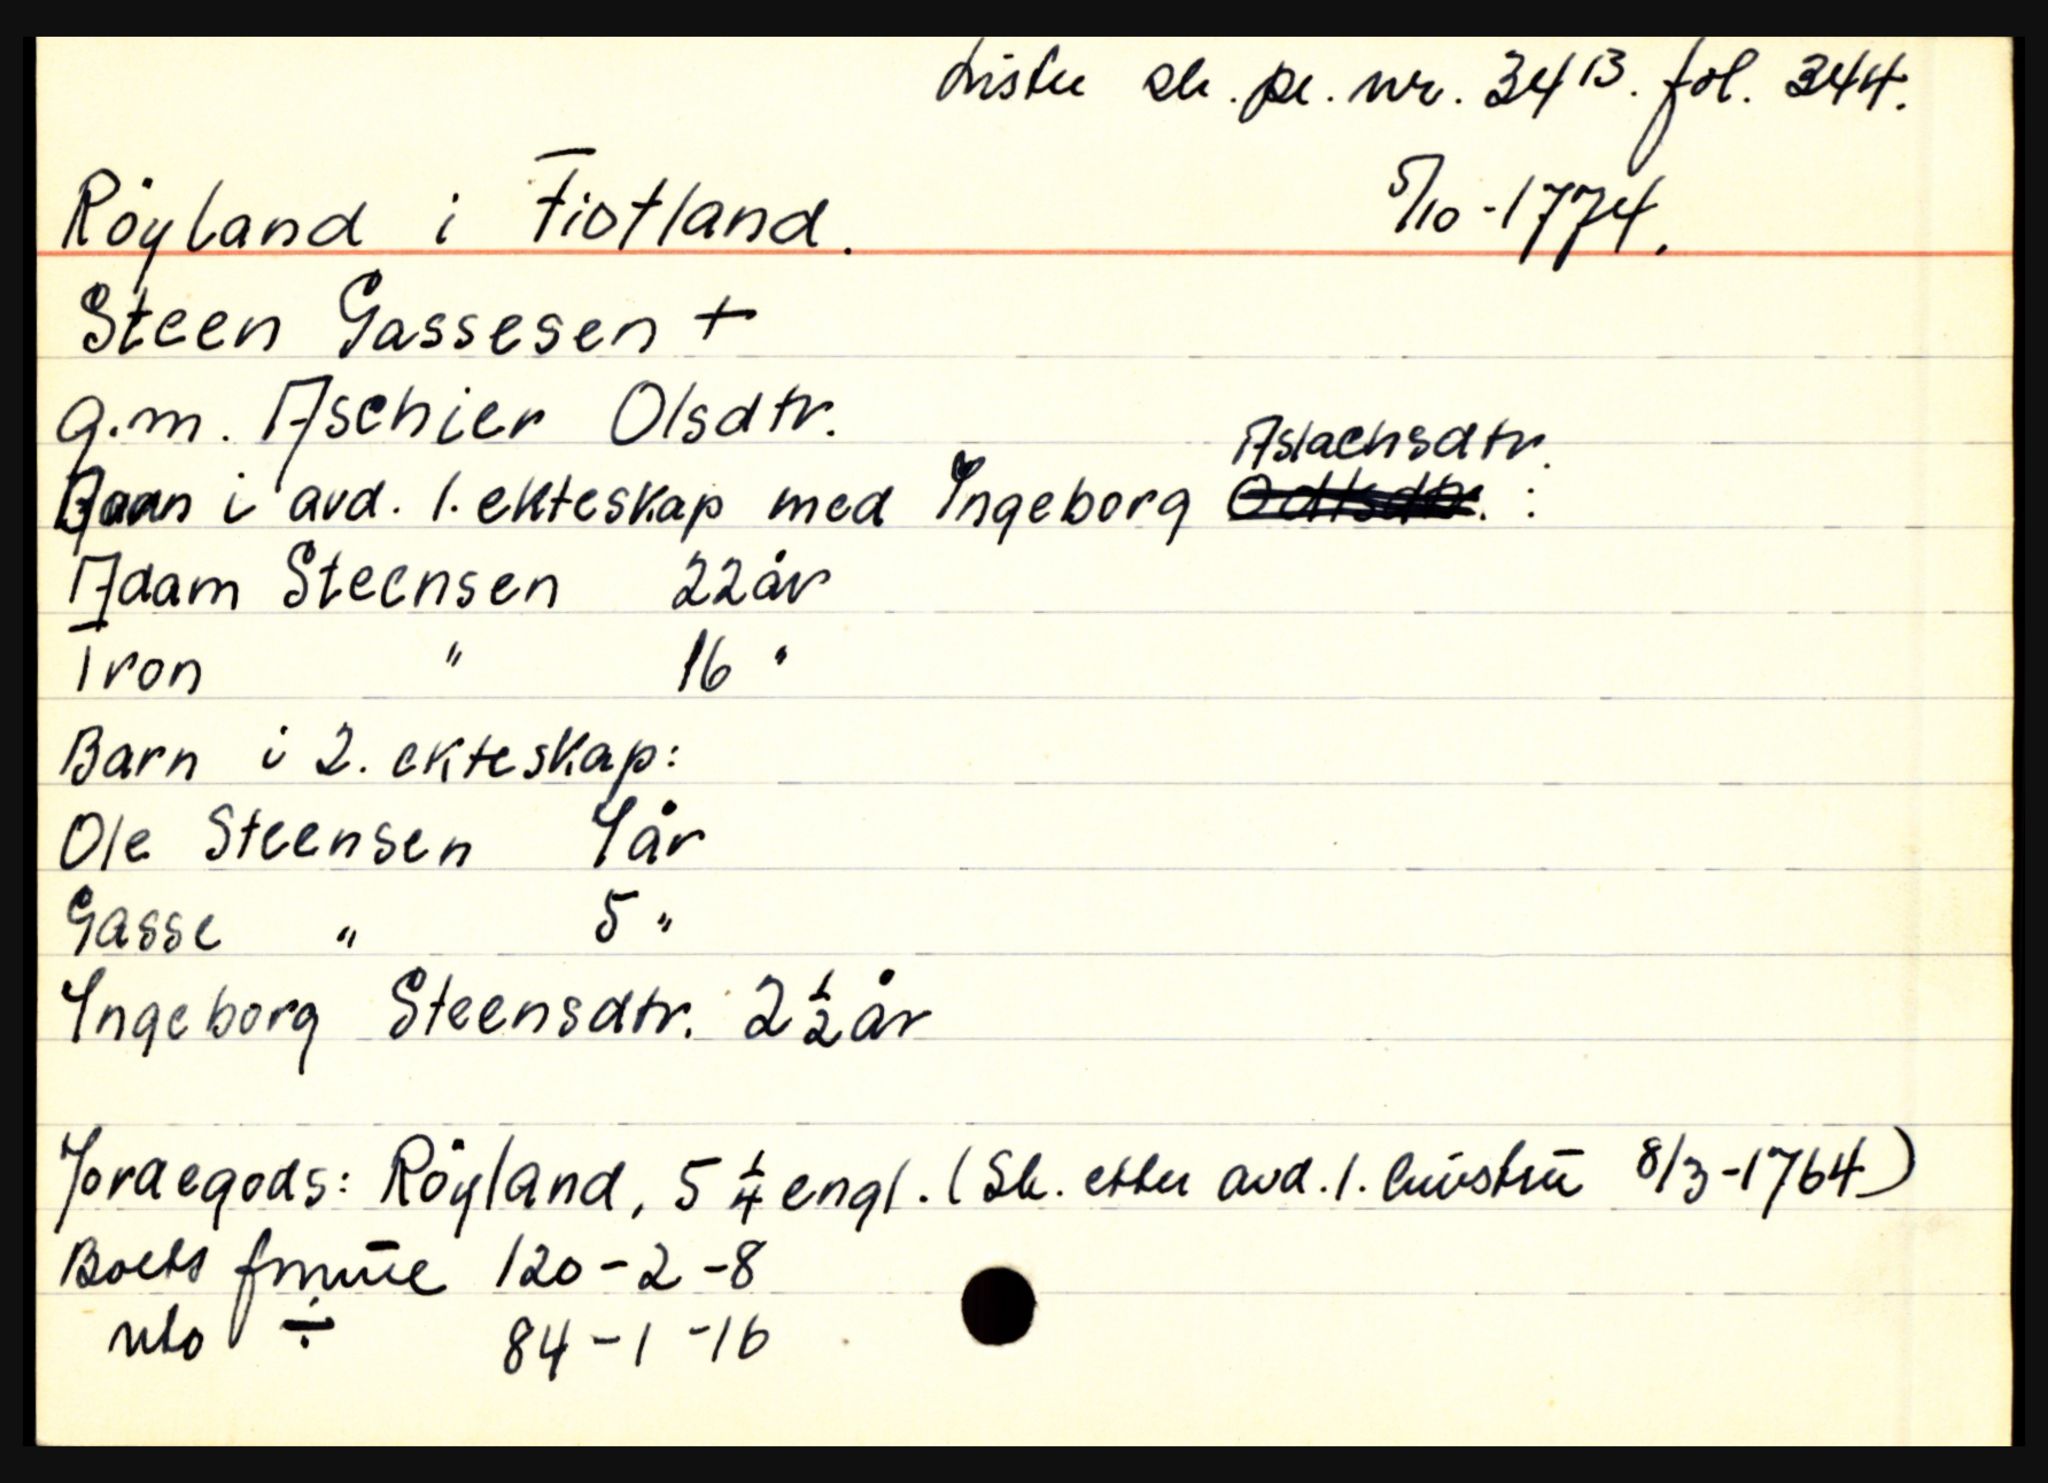 Lister sk. pr. nr. 34 B. fol. 344.
Röyland i Fiotland. 5/10-1774.
Steen Gassesen +
g.m. Aschier Olsdtr.
Aslachsdtr.
Barn i avd. 1. ekteskap med Ingeborg Odtsdtr. :
Adam Steensen 22 år
Tron " 16 "
Barn i 2. ekteskap:
Ole Steensen 7 år
Gasse " 5 "
Ingeborg Steensdtr. 2 1/2 år
Jordegods: Röyland, 5 1/4 engl. (Sk. etter avd. 1. hustru 8/3-1764)
Boets formue 120-2-8
nto ÷ 84-1-16